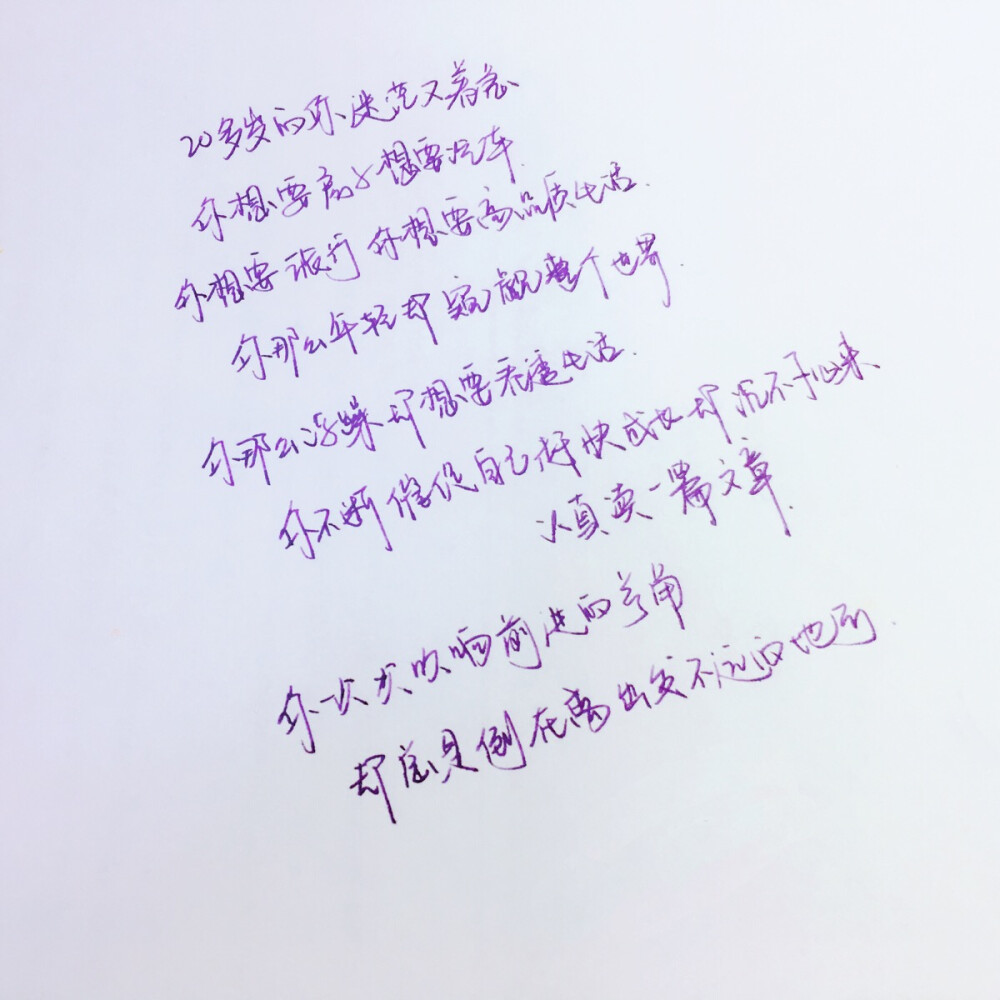 20多岁的你、迷茫又着急
你想要房子想要汽车.
你想要旅行 你想要高品质生活.
你那么年轻却窥觑整个世界.
你那么浮躁却想要看透生活.
你不断催促自己赶快成长却沉不下心来、
认真读一篇文章.
你一次次吹响前进的号角
却总是倒在离出发不远的地方.